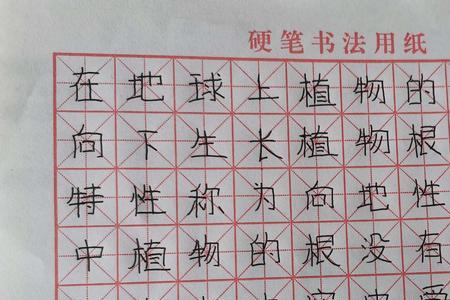 硬笔书法用纸
在地球上植物的
向下生长植物根
特性称为向地性
中植物的根没有